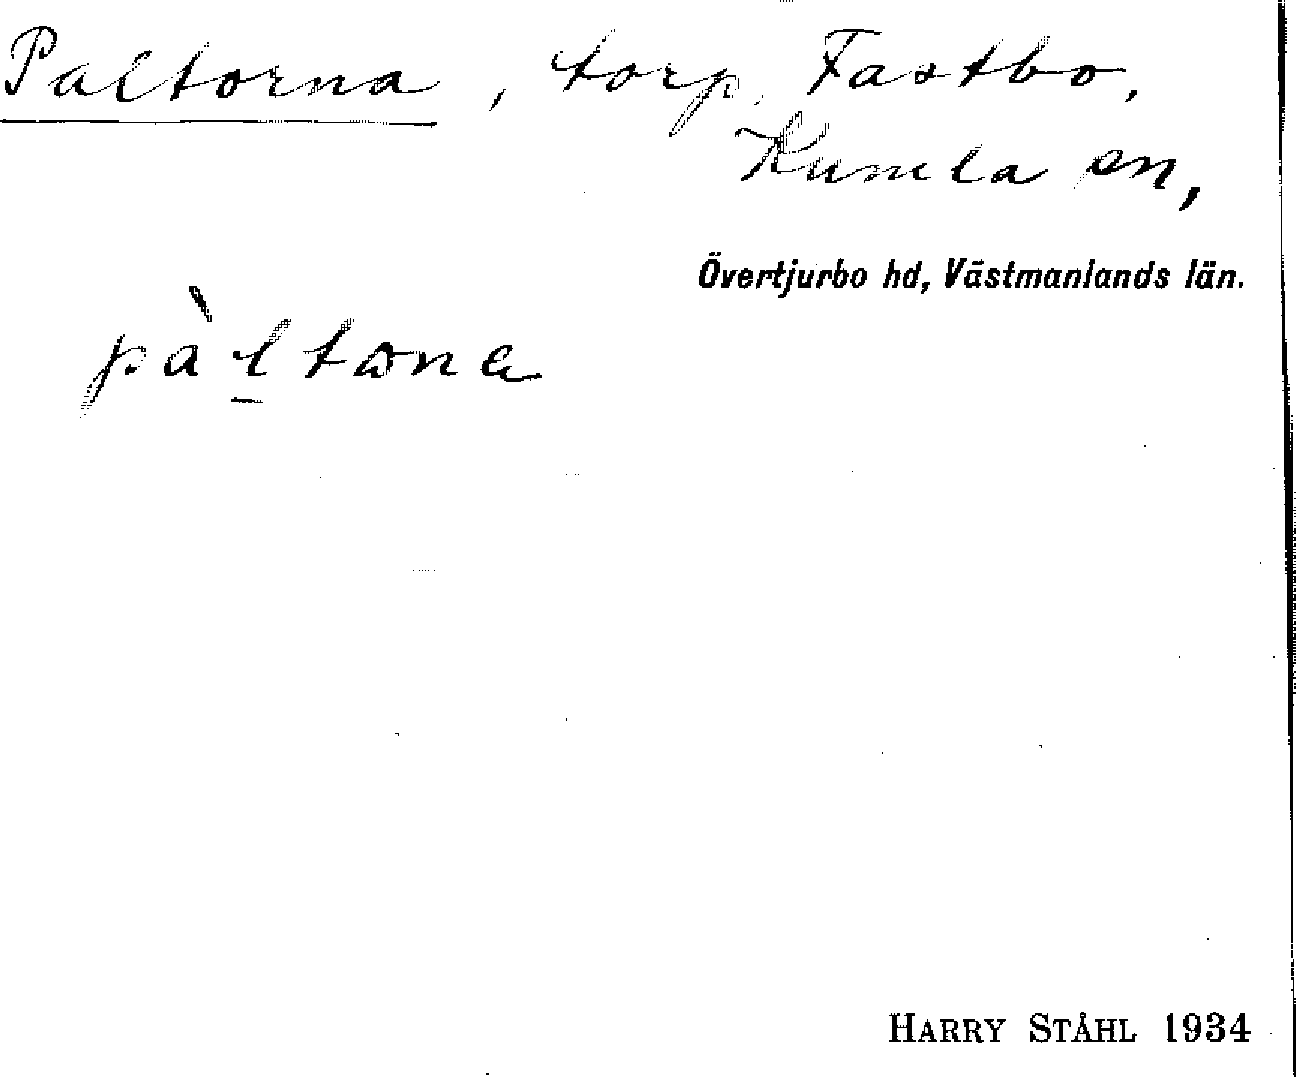 Paltorna, torp, Fastbo,
Kumla sn,
Övertjurbo hd, Västmanlands län.
pàltωna
HARRY STÅHL 1934